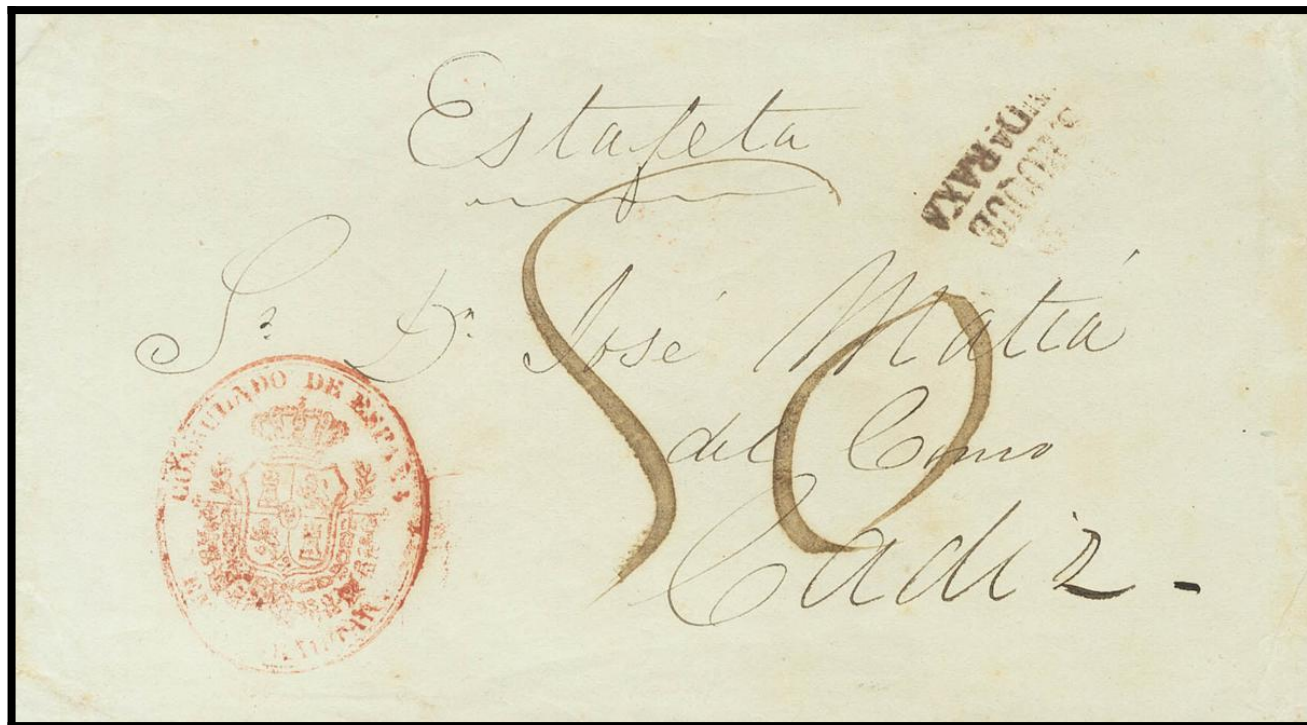 Estafeta
S. ROQUE
DA BAXA
Sr. Dn. José Matiá
del Como
Cadiz.-
CONSULADO DE ESPAÑA
50